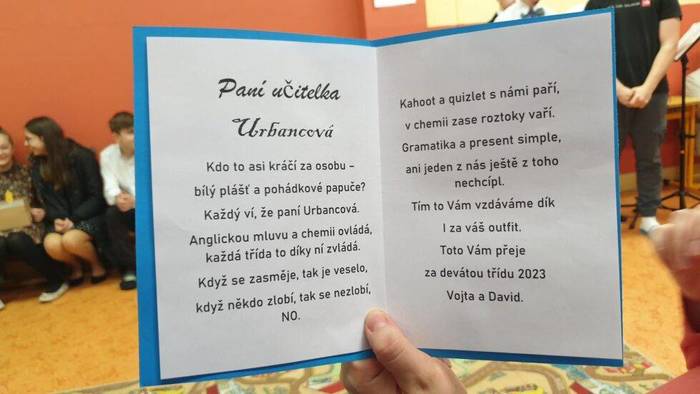 Paní učitelka
Urbancová
Kdo to asi kráčí za osobu –
bílý plášť a pohádkové papuče?
Každý ví, že paní Urbancová.
Anglickou mluvu a chemii ovládá,
každá třída to díky ní zvládá.
Když se zasměje, tak je veselo,
když někdo zlobí, tak se nezlobí,
NO.
Kahoot a quizlet s námi paří,
v chemii zase roztoky vaří.
Gramatika a present simple,
ani jeden z nás ještě z toho
nechcípl.
Tím to Vám vzdáváme dík
I za váš outfit.
Toto Vám přeje
za devátou třídu 2023
Vojta a David.